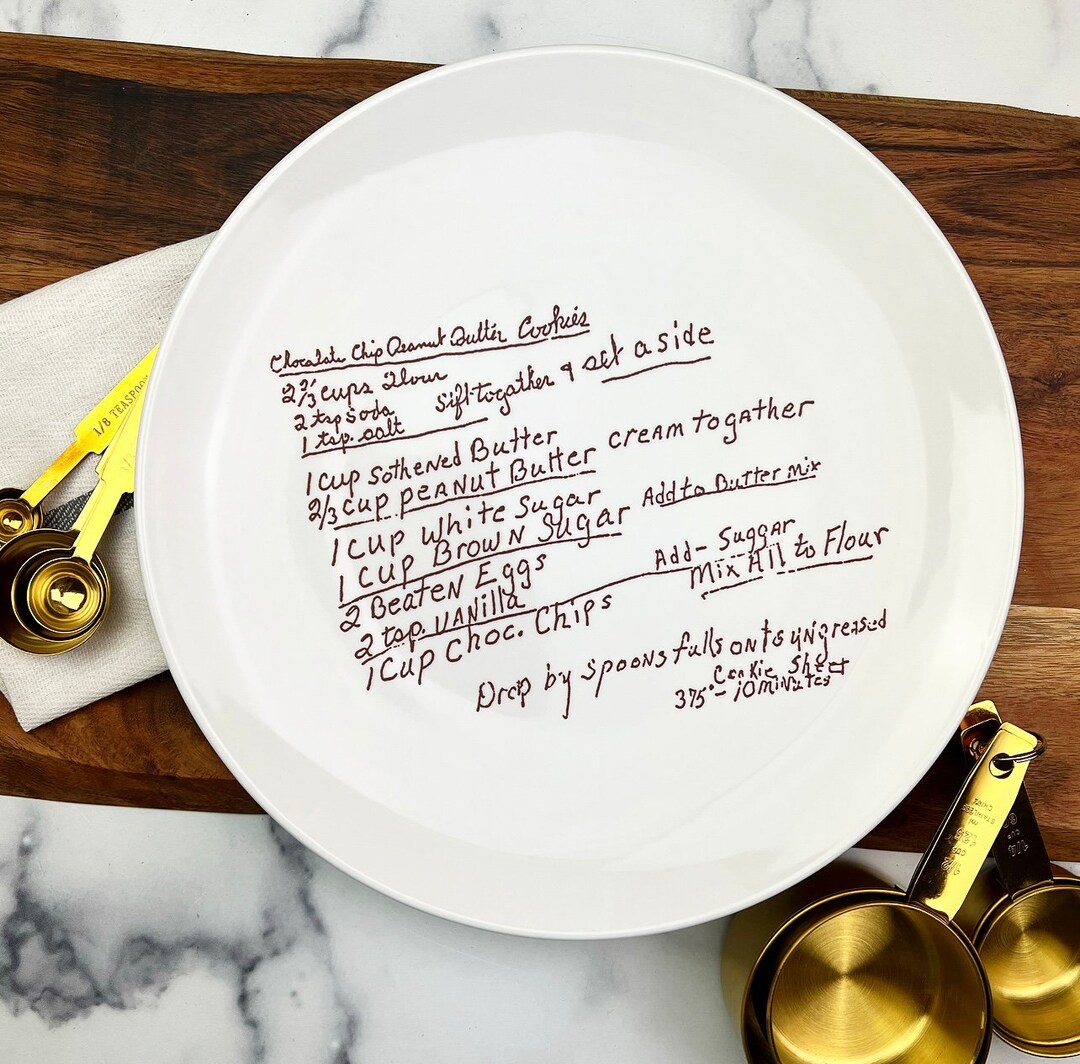 Chocolate Chip Peanut Butter Cookies
2 2/3 cups Flour
2 tsp soda Sift together & set aside
1 tsp. salt
1 cup Sothened Butter
2/3 cup peanut Butter cream togather
1 cup White Sugar
1 cup Brown Sugar Add to Butter mix
2 Beaten Eggs
2 tsp. Vanilla Add- Suggar
Mix All to Flour
1 Cup Choc. Chips
Drop by spoons fulls onto ungreased
Cookie Sheet
375°- 10 minutes
1/8 TEASPOON
1/2 CUP
1/4 CUP